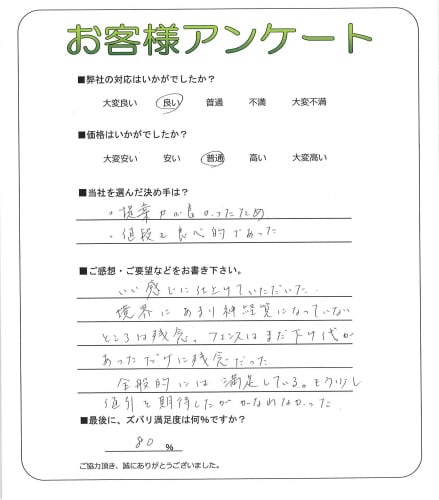 お客様アンケート
■弊社の対応はいかがでしたか?
大変良い 良い 普通 不満 大変不満
■価格はいかがでしたか?
大変安い 安い 普通 高い 大変高い
■当社を選んだ決め手は?
・提案力が良かったため
・値段も良心的であった
■ご感想・ご要望などをお書き下さい。
いい感じに仕上げていただいた.
境界にあまり神経質になっていない
ところは残念。フェンスはまだ下げ代が
あっただけに残念だった
全般的には満足している。もう少し
値引を期待したがかなわなかった.
■最後に、ズバリ満足度は何%ですか?
80 %
ご協力頂き、誠にありがとうございました。